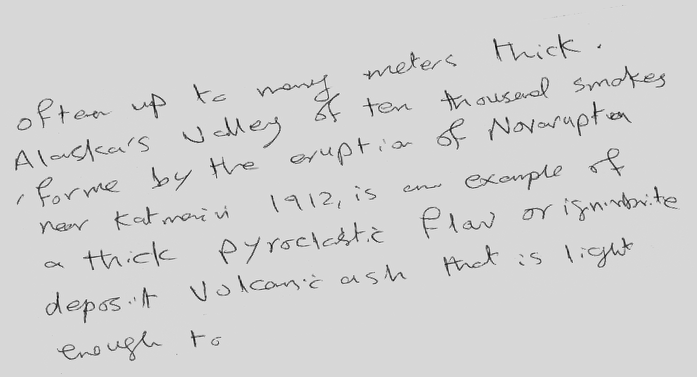 often up to many meters thick.
Alaska's Valley of ten thousand smokes
, forme by the eruption of Novarupta
near Katmaivi 1912, is an example of
a thick pyroclastic flaw or ignimbrite
deposit Volcanic ash that is light
enough to